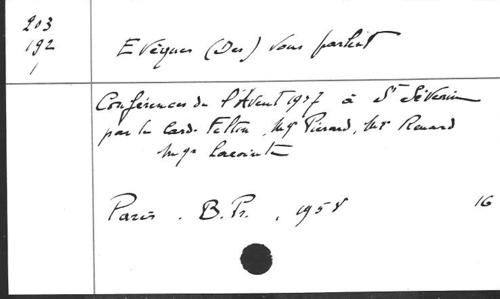 203
192
1
Evêques (Des) vous parlent
Conférences de l'Avent 1957 à St Séverin
par le Card. Feltin, Mgr Pierard, Mgr Renard
Mgr Lacointe
Paris . B.P. , 1958
16